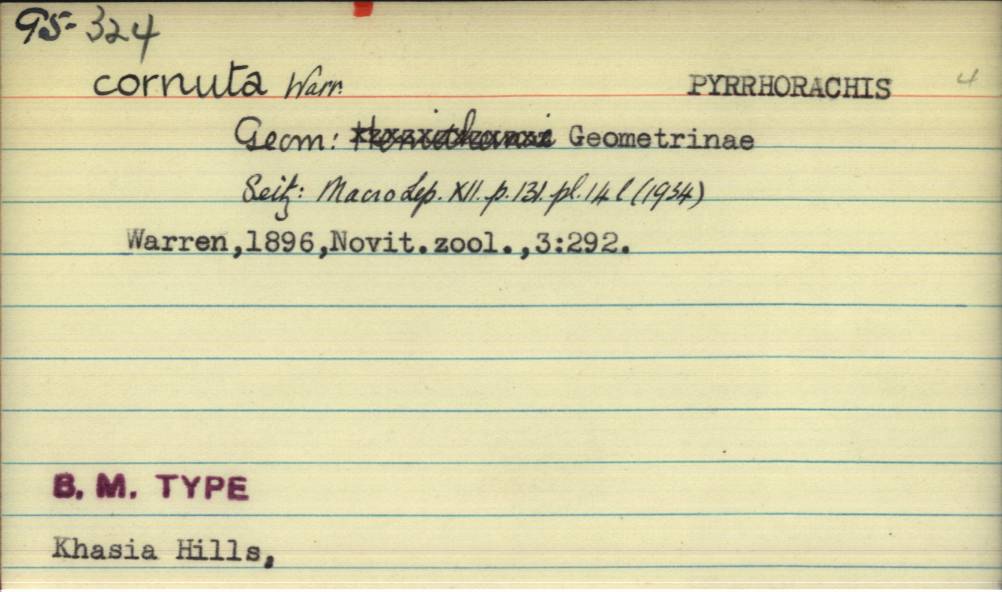 95-324
cornuta Warr. PYRRHORACHIS 4
Geom: Geometrinae
Seitz: Macro Lep. XII. p. 131. pl. 14 l (1934)
Warren,1896,Novit.zool.,3:292.
B. M. TYPE
Khasia Hills,